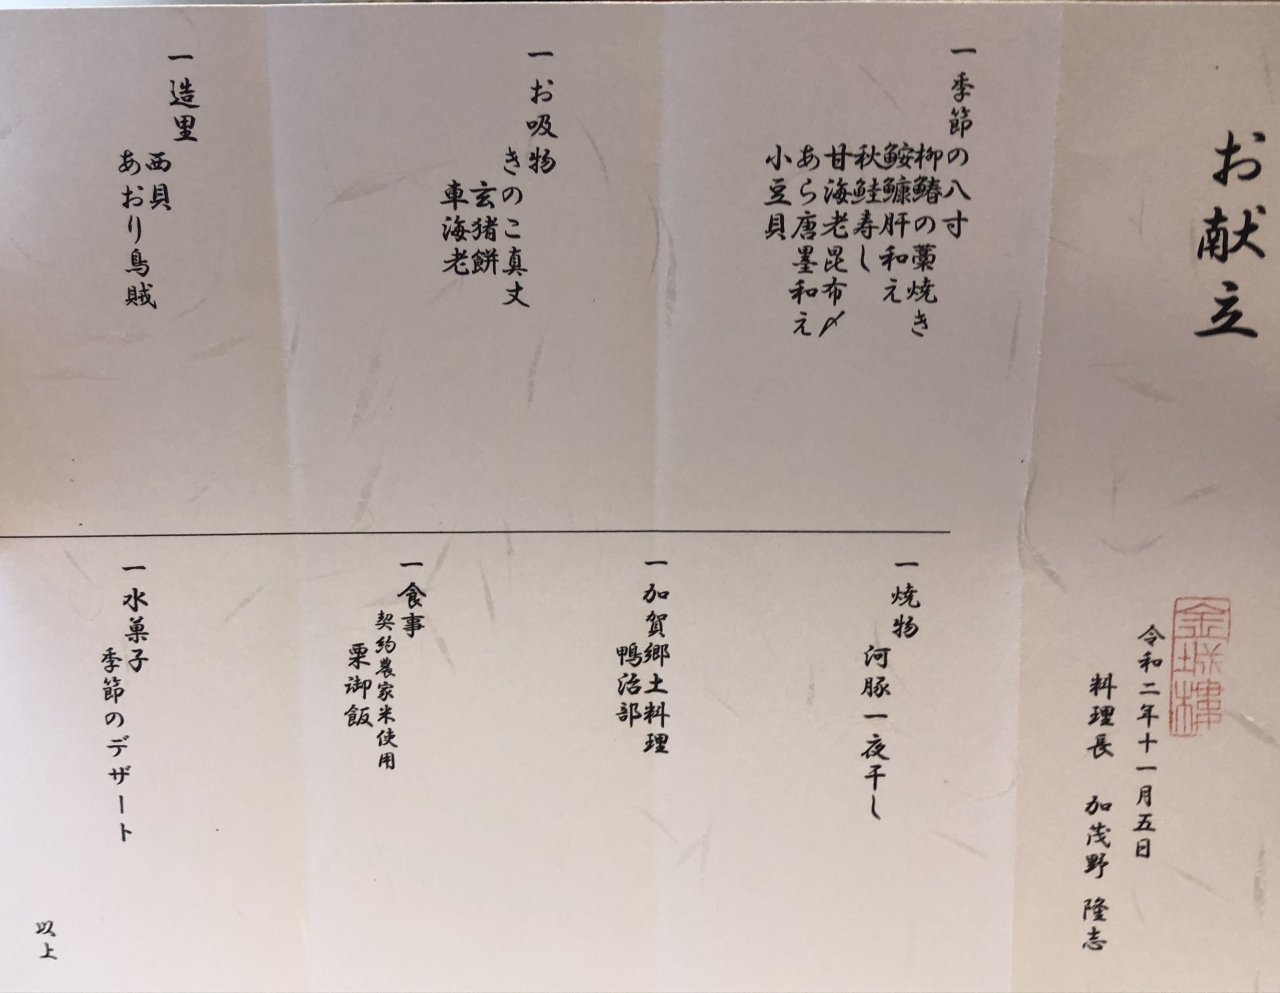 お献立
金城樓
令和二年十一月五日
料理長 加茂野 隆志
一 季節の八寸
柳鰆の藁焼き
鮟鱇肝和え
秋鮭寿し
甘海老昆布〆
あら唐墨和え
小豆貝
一 お吸物
きのこ真丈
玄猪餅
車海老
一 造里
西貝
あおり烏賊
一 焼物
河豚一夜干し
一 加賀郷土料理
鴨治部
一 食事
契約農家米使用
栗御飯
一 水菓子
季節のデザート
以上